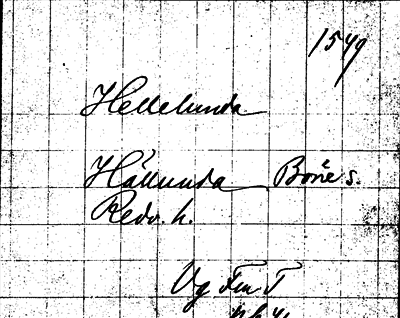 1549
Hellelunda
Hällunda Borie s.
Redv. h.
Vg Fru T